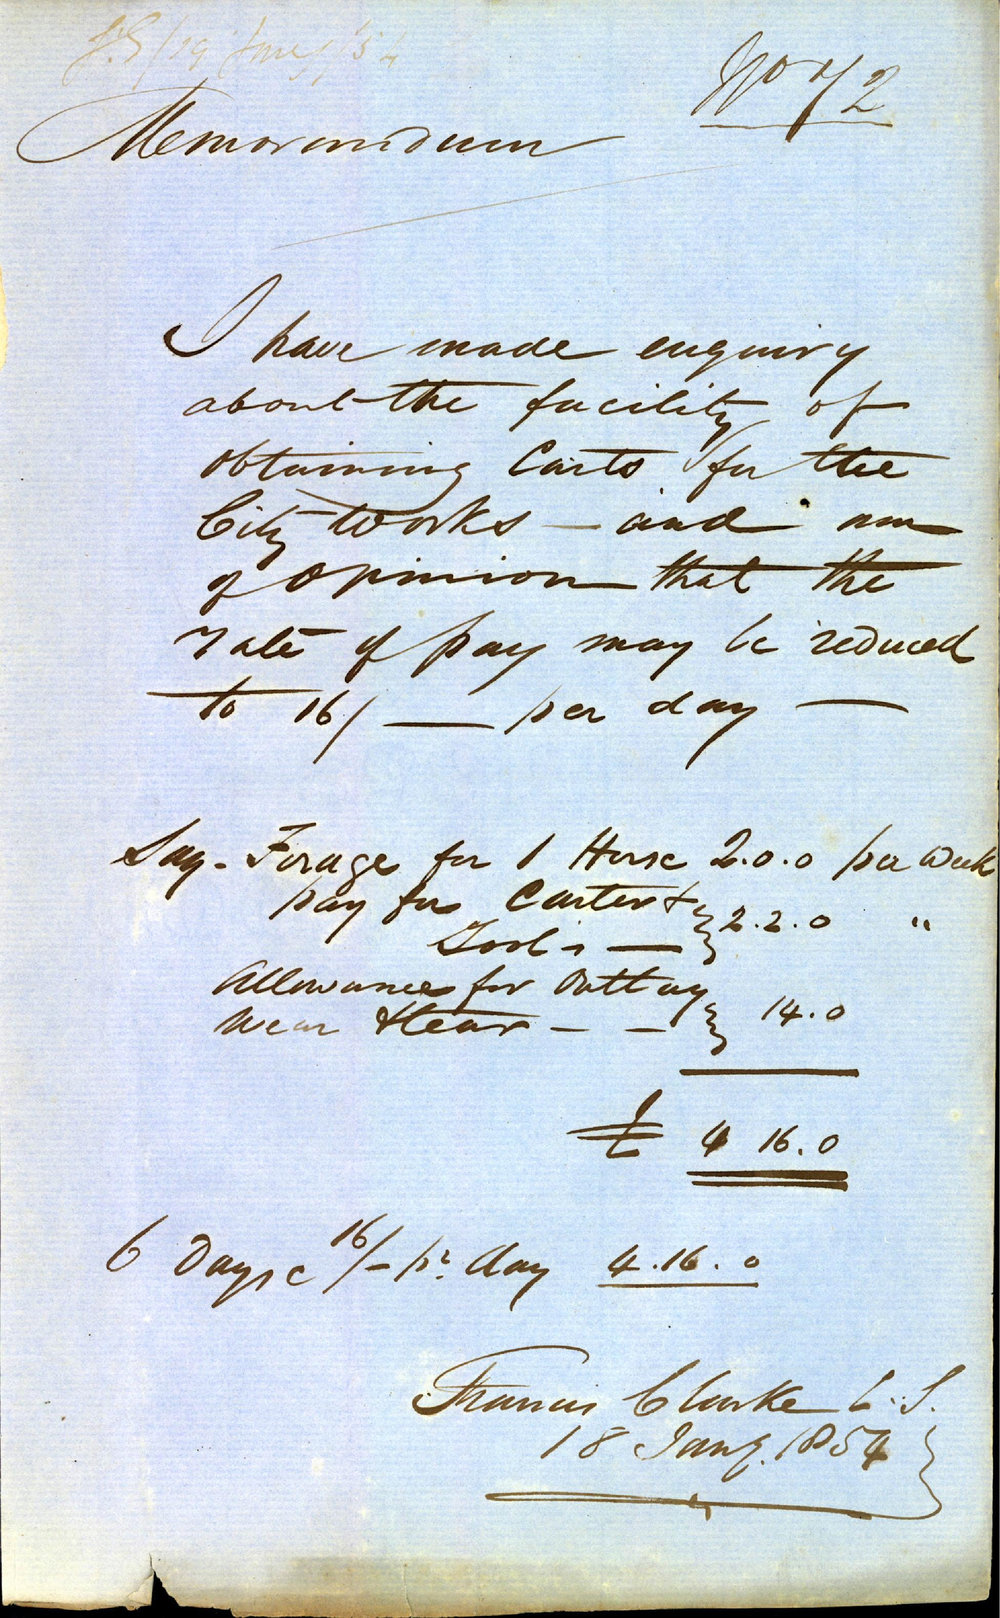 19 Jany /54
No 72
Memorandum
I have made enquiry
about the facility of
obtaining Carts for the
City Works – and am
of opinion that the
rate of pay may be reduced
to 16/ — per day —
Say - Forage for 1 Horse 2.0.0 per week
pay for Carter & } 2.2.0 "
Tools —
Allowance for Outlay
Wear & tear – – } 14.0
£ 4 16.0
6 Days @ 16/- pr. day 4.16.0
Francis Clarke C.S.
18 Jany. 1854